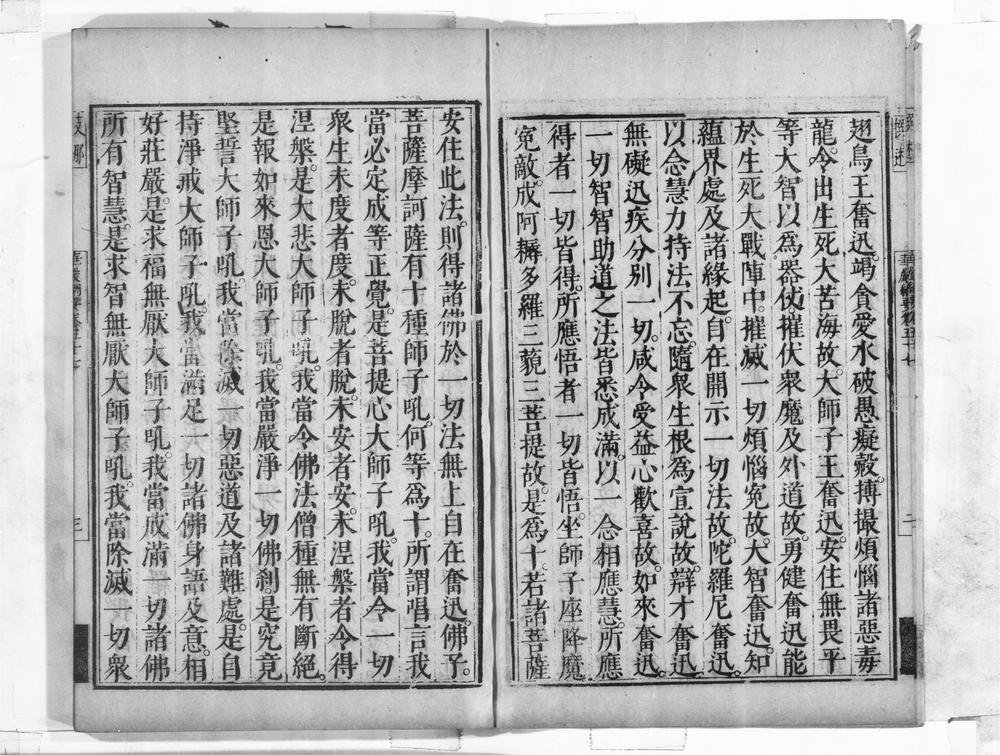 翅鳥王奮迅。竭貪愛水破愚癡㲉搏撮煩惱諸惡毒
龍。令出生死大苦海故。大師子王奮迅。安住無畏平
等大智以爲器仗。摧伏衆魔及外道故。勇健奮迅。能
於生死大戰陣中。摧滅一切煩惱寃故。大智奮迅。知
蘊界處及諸緣起。自在開示一切法故。陀羅尼奮迅。
以念慧力持法不忘。隨衆生根爲宣說故。辯才奮迅。
無礙迅疾分别一切。咸令受益心歡喜故。如來奮迅。
一切智智助道之法皆悉成滿。以一念相應慧。所應
得者一切皆得。所應悟者一切皆悟。坐師子座降魔
寃敵。成阿耨多羅三藐三菩提故。是爲十。若諸菩薩
安住此法。則得諸佛於一切法無上自在奮迅。佛子。
菩薩摩訶薩有十種師子吼。何等爲十。所謂唱言我
當必定成等正覺。是菩提心大師子吼。我當令一切
衆生未度者度。未脫者脫。未安者安。未涅槃者令得
涅槃。是大悲大師子吼。我當令佛法僧種無有斷絕。
是報如來恩大師子吼。我當嚴淨一切佛刹。是究竟
堅誓大師子吼。我當除滅一切惡道及諸難處。是自
持淨戒大師子吼。我當滿足一切諸佛身語及意。相
好莊嚴。是求福無厭大師子吼。我當成滿一切諸佛
所有智慧。是求智無厭大師子吼。我當除滅一切衆
三